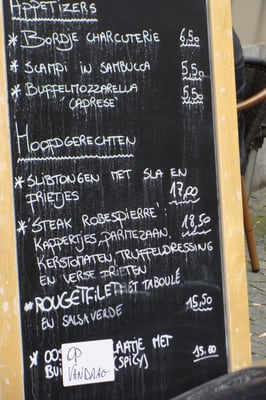 APPETIZERS
* BORDJE CHARCUTERIE 6,50
* SCAMPI IN SAMBUCCA 5,50
* BUFFELMOZZARELLA 5,50
'CAPRESE'
HOOFDGERECHTEN
* SLIBTONGEN MET SLA EN
FRIETJES 17,00
* 'STEAK ROBESPIERRE': 18,50
KAPPERTJES, PARMEZAAN,
KERSTOMATEN, TRUFFELDRESSING
EN VERSE FRITEN
* ROUGETFILET MET TABOULÉ
EN SALSA VERDE 15,50
MET 15.80
(SPICY)
OP
VANDAAG